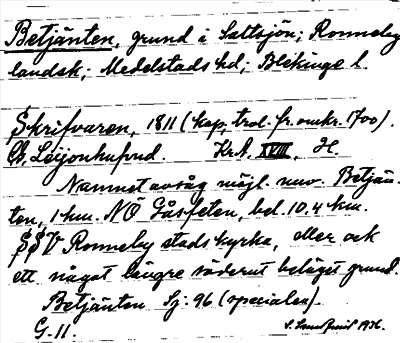 Betjänten, grund i Saltsjön; Ronneby
landsk; Medelstads hd; Blekinge l.
Skrifvaren, 1811 (kop, trol. fr. omkr. 1700).
Leijonhufvud. KrA, XVIII, H.
Namnet avsåg möjl. nuv. Betjän-
ten, 1 km. NÖ Gåsfeten, bel. 10.4 km.
SSV Ronneby stads kyrka, eller ock
ett något längre söderut beläget grund.
Betjänten Sj: 96 (specialen).
G. 11. 1936.